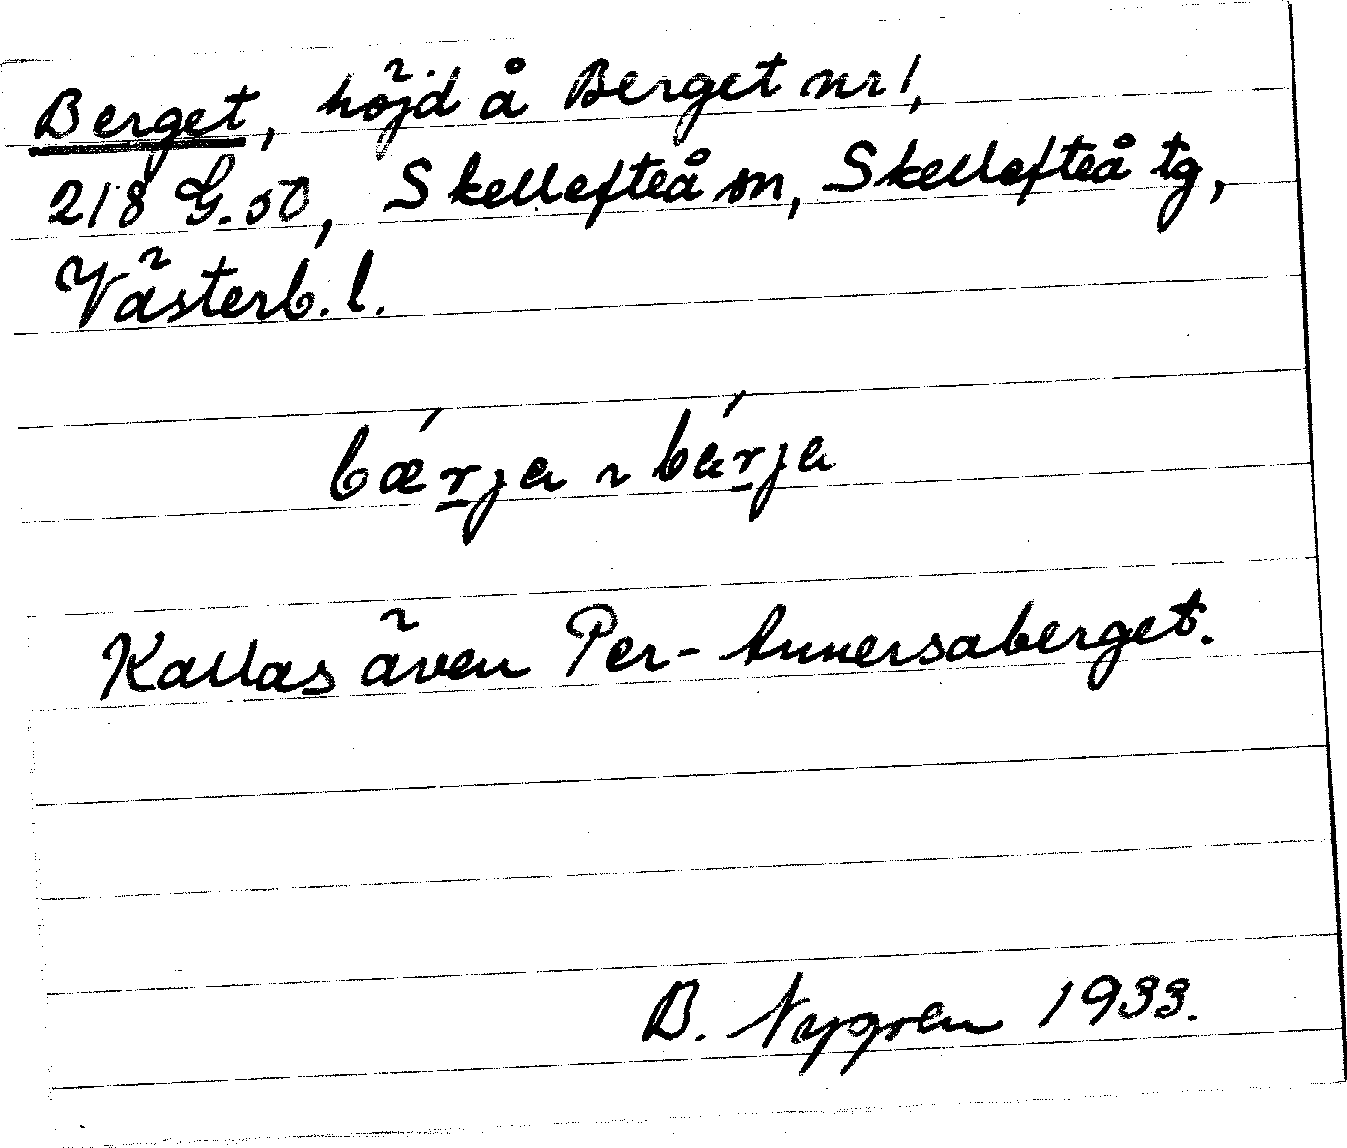 Berget, höjd å Berget nr 1,
218 G. 50, Skellefteå sn, Skellefteå tg,
Västerb. l.
bǽrja ~ bárja
Kallas även Per-Annersaberget.
B. Nygren 1933.